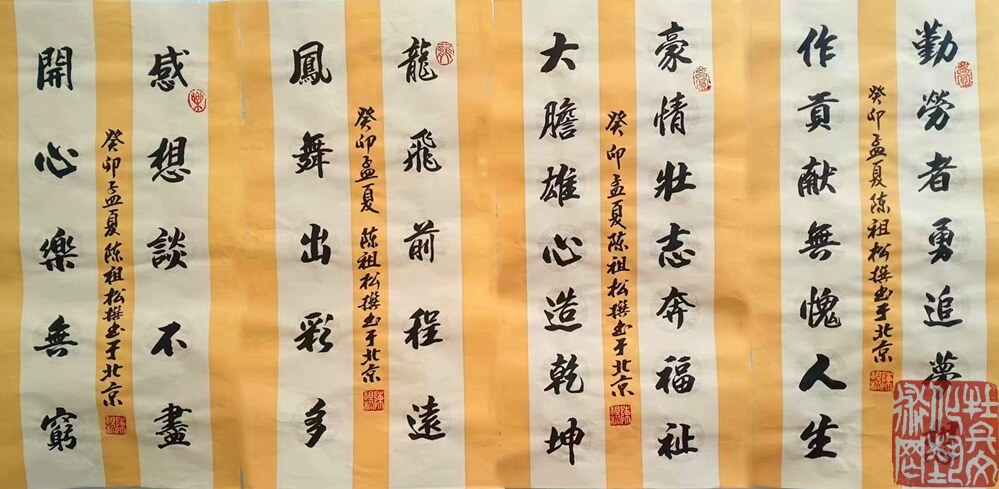 勤勞者勇追夢想
癸卯孟夏陈祖松撰书于北京
作貢献無愧人生
豪情壯志奔福祉
癸卯孟夏陈祖松撰书于北京
大膽雄心造乾坤
龍飛前程遠
癸卯孟夏陈祖松撰书于北京
鳳舞出彩多
感想談不盡
癸卯孟夏陈祖松撰书于北京
開心樂無窮